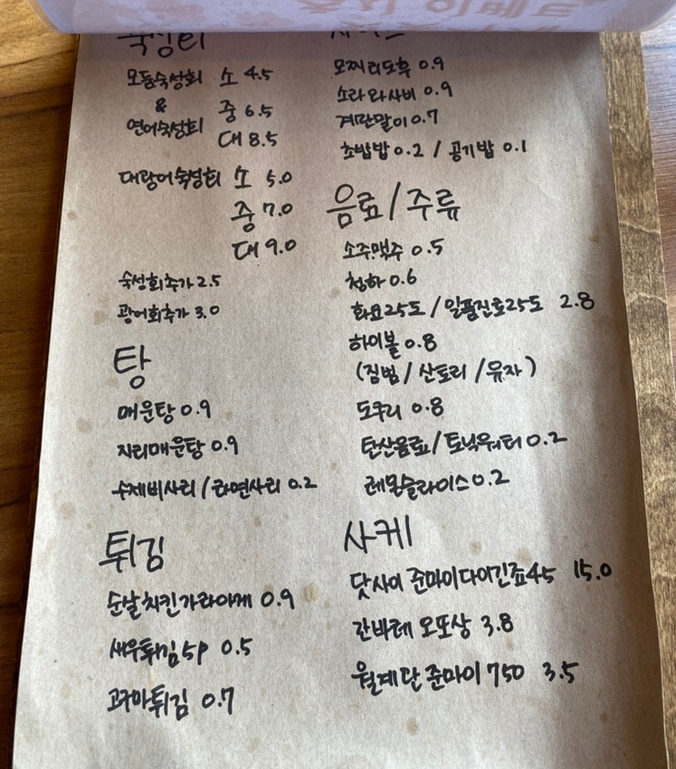 숙성회
모둠숙성회 소 4.5
& 중 6.5
연어숙성회 대 8.5
대광어숙성회 소 5.0
중 7.0
대 9.0
숙성회추가 2.5
광어회추가 3.0
탕
매운탕 0.9
지리매운탕 0.9
수제비사리 / 라면사리 0.2
튀김
순살치킨가라아게 0.9
새우튀김 5P 0.5
고구마튀김 0.7
모찌리도후 0.9
소라와사비 0.9
계란말이 0.7
초밥밥 0.2 / 공기밥 0.1
음료 / 주류
소주맥주 0.5
청하 0.6
화요25도 / 일품진로25도 2.8
하이볼 0.8
(짐빔 / 산토리 / 유자)
도쿠리 0.8
탄산음료 / 토닉워터 0.2
레몬슬라이스 0.2
사케
닷사이 준마이다이긴죠45 15.0
간바레 오또상 3.8
월계단 준마이 750 3.5